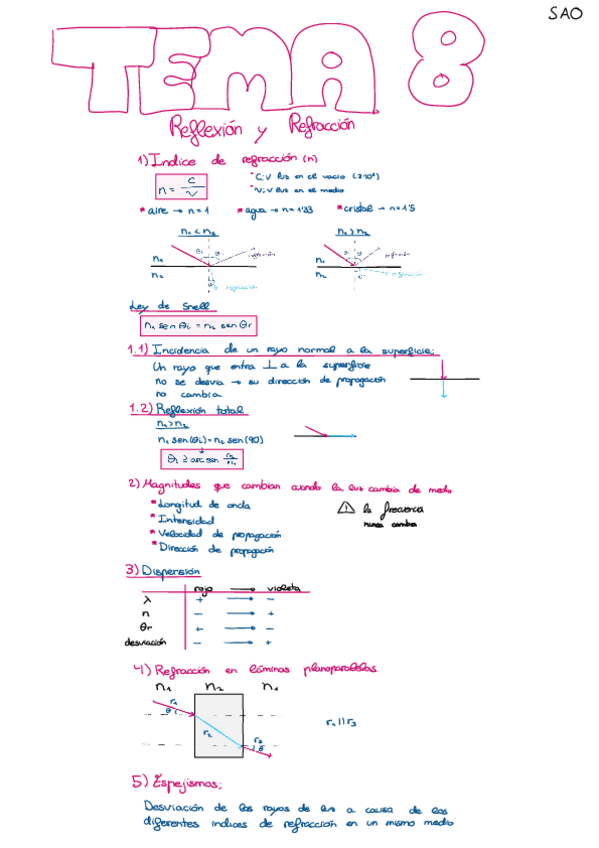 SAO
TEMA 8
Reflexión y Refracción
1) Índice de refracción (n)
n = c/v
* C: V luz en el vacío (3·10⁸)
* V: V luz en el medio
* aire → n = 1 * agua → n = 1'33 * cristal → n = 1'5
n₁ < n₂ n₁ > n₂
n₁ reflexión n₁ reflexión
n₂ refracción n₂ refracción
Ley de Snell
n₁ sen θi = n₂ sen θr
1.1) Incidencia de un rayo normal a la superficie:
Un rayo que entra ⊥ a la superficie
no se desvía → su dirección de propagación
no cambia
1.2) Reflexión total
n₁ > n₂
n₁ sen(θi) = n₂ sen(90)
θi ≥ arcsen n₂/n₁
2) Magnitudes que cambian cuando la luz cambia de medio
* Longitud de onda
* Intensidad
* Velocidad de propagación
* Dirección de propagación
⚠ la frecuencia
nunca cambia
3) Dispersión
rojo → violeta
λ + → -
n - → +
θr + → -
desviación - → +
4) Refracción en láminas planoparalelas
n₁ n₂ n₁
r₁
θ
r₂
r₃
θ
r₁ || r₃
5) Espejismos:
Desviación de los rayos de luz a causa de los
diferentes índices de refracción en un mismo medio